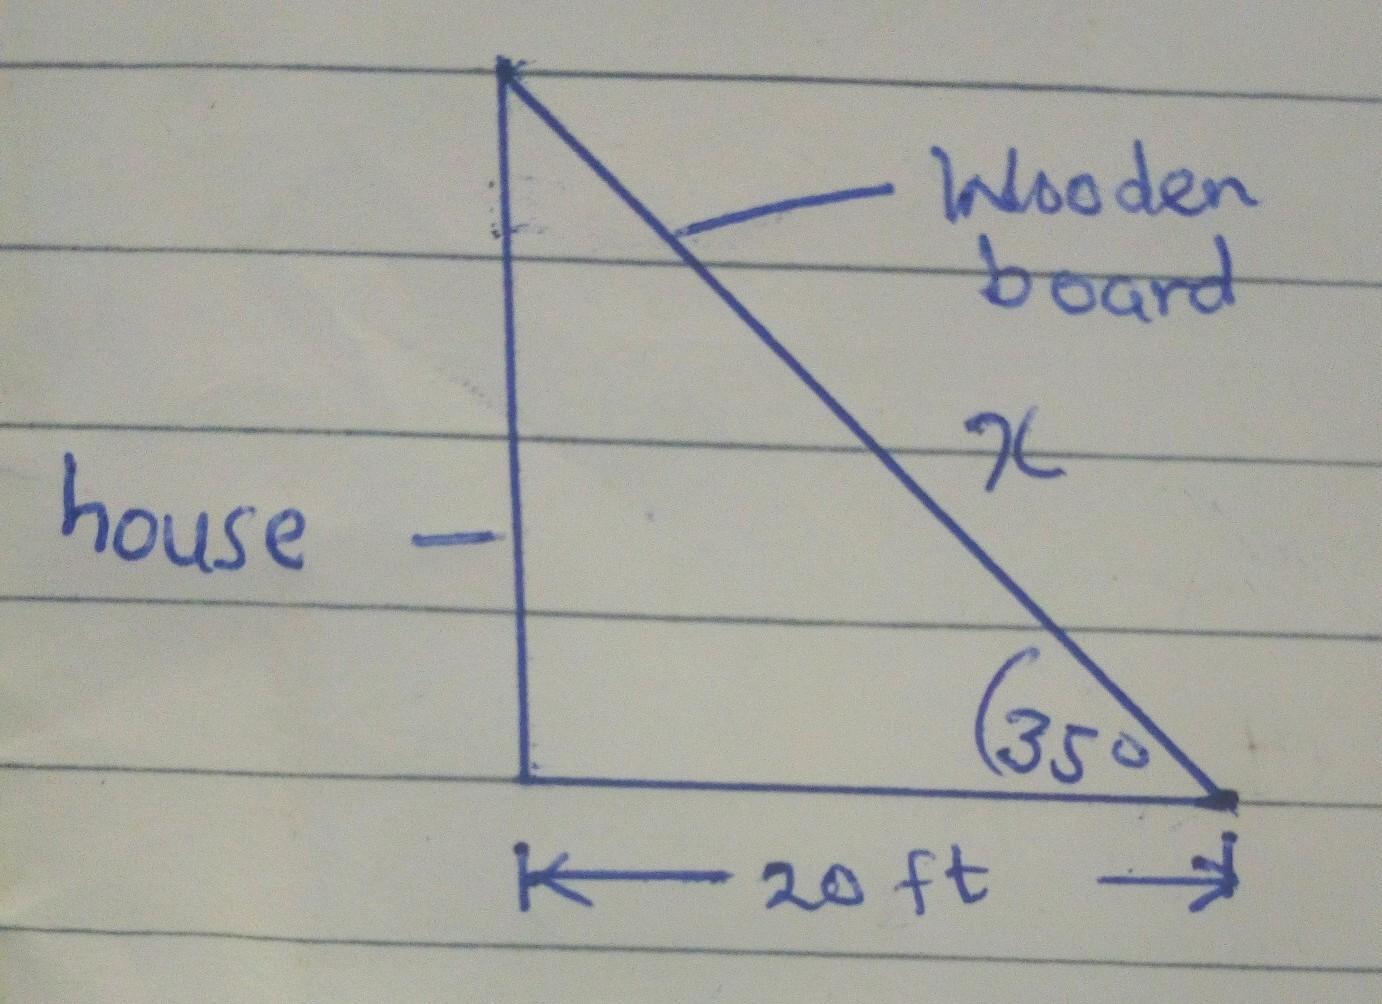 Wooden
board
x
house
35°
20 ft